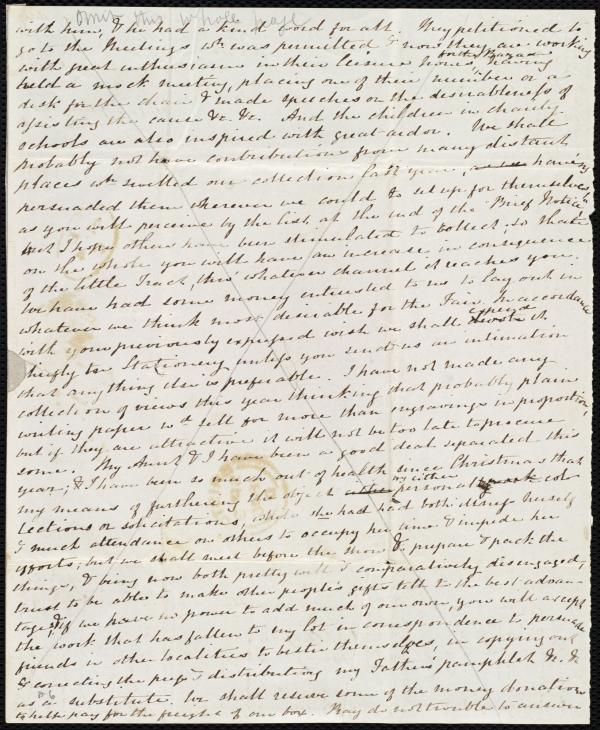 omit this whole page
with him, & he had a kind word for all. They petitioned to
go to the Meetings wh. was permitted & now they are working
for the Bazaar
with great enthusiasm in their leisure hours, having
held a mock meeting, placing one of their number on a
desk for the chair & made speeches on the desirableness of
assisting the cause &c. &c. And the children in charity
schools are also inspired with great ardor. We shall
probably not have contributions from many distant
places wh. swelled our collections last year, having
persuaded them wherever we could to set up for themselves,
as you will perceive by the list, at the end of the "Brief Notice"
but I hope others have been stimulated to collect, so that
on the whole you will have an increase in consequence
of the little Tract, thro' whatever channel it reaches you.
We have had some money entrusted to us to lay out in
whatever we think most desirable for the Fair. In accordance
with your previously expressed wish we shall expend it
chiefly in Stationery unless you send us an intimation
that anything else is preferable. I have not made any
collection of views this year thinking that probably plain
writing paper wd. sell for more than engravings in proportion
but if they are attractive it will not be too late to procure
some. My Aunt & I have been a good deal separated this
year; & I have been so much out of health since Christmas that
my means of furthering the object by either personal col-
lections or solicitations, while she had had both illness herself
& much attendance on others to occupy her time & impede her
efforts; but we shall meet before the time to prepare & pack the
things, & being now both pretty well & comparatively disengaged,
trust to be able to make other people's gifts tell to the best advan-
tage, & if we have no power to add much of our own you will accept
the work that has fallen to my lot in correspondence to persuade
friends in other localities to bestir themselves, in copying out
& correcting the proofs & distributing my Father's pamphlet &c. &c.
as a substitute. We shall reserve some of the money donations
to help pay for the freight of our box. Pray do not trouble to answer